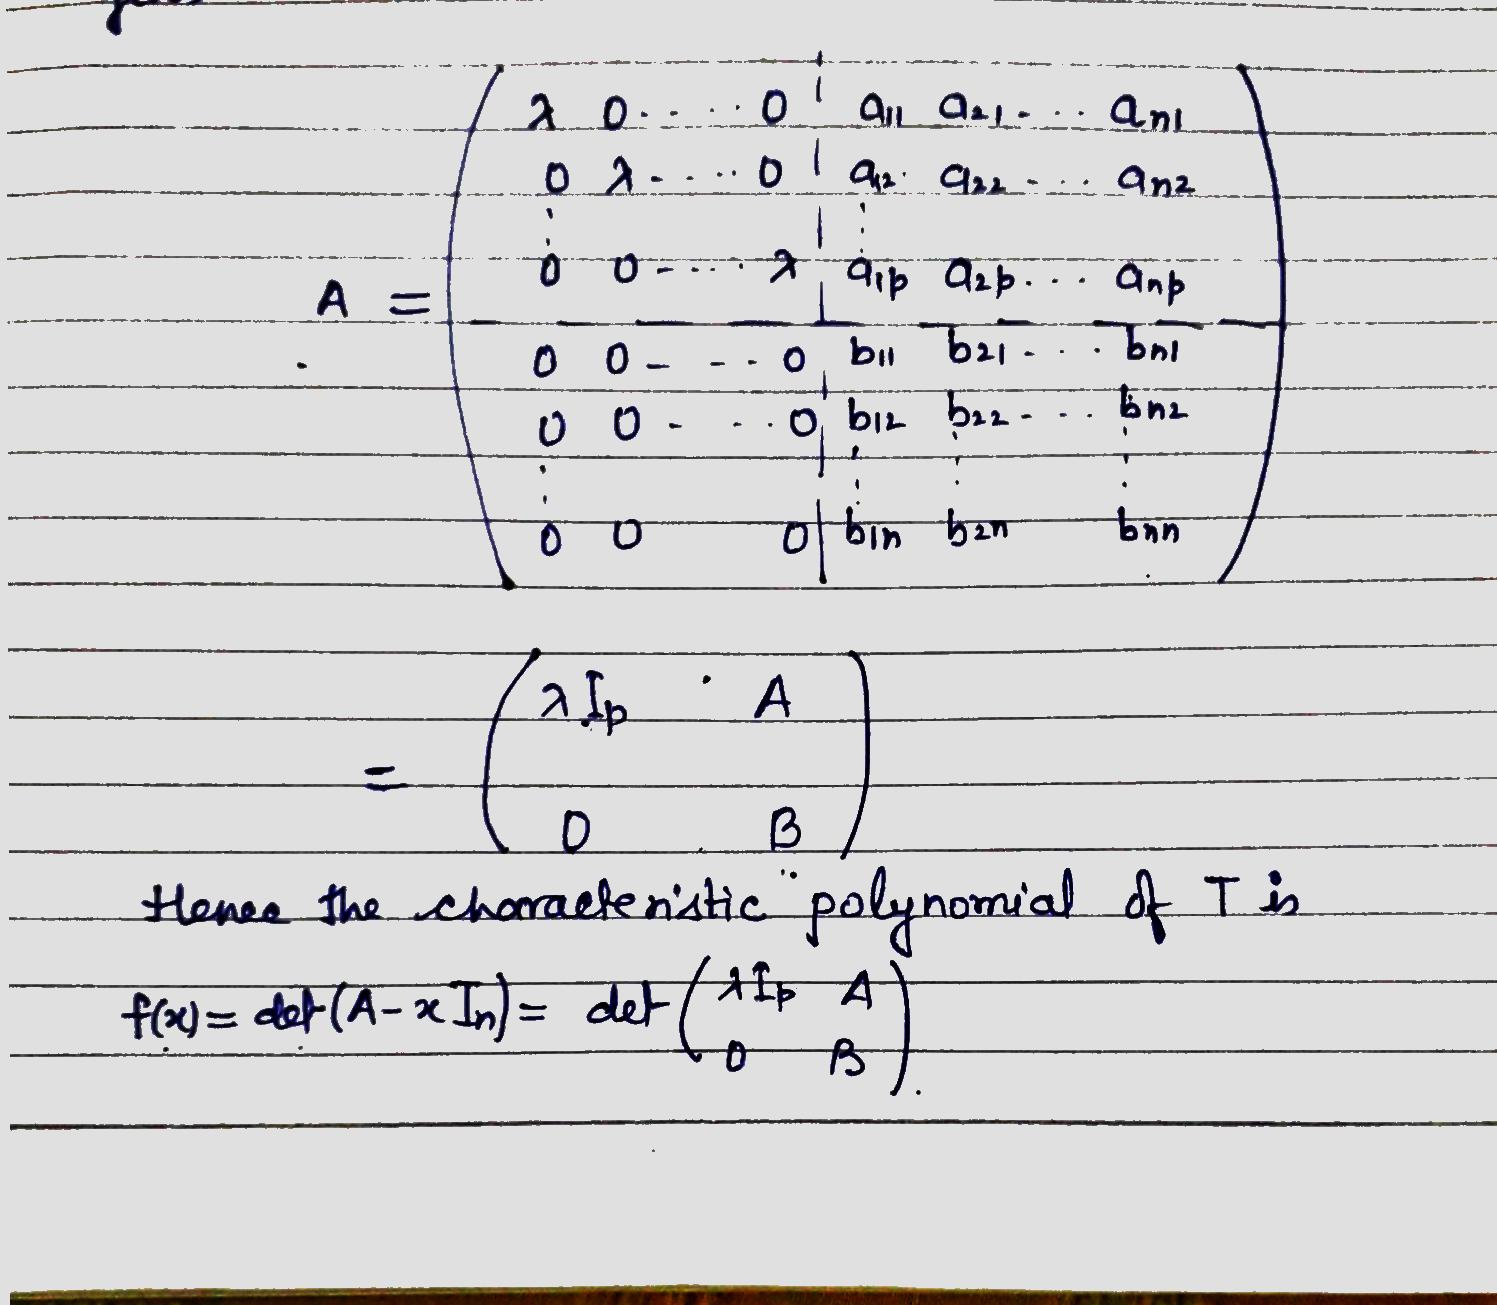 λ 0 . . . . . 0 a11 a21 . . . . an1
0 λ . . . . . 0 a12 a22 . . . . an2
0 0 - - . . . λ a1p a2p . . . anp
A =
0 0 - - - . . 0 b11 b21 . . . . bn1
0 0 - - . . 0 b12 b22 - . . . bn2
0 0 0 b1n b2n bnn
λIp A
=
0 B
Hence the characteristic polynomial of T is
f(x) = det(A - xIn) = det ( λIp A
0 B ) .